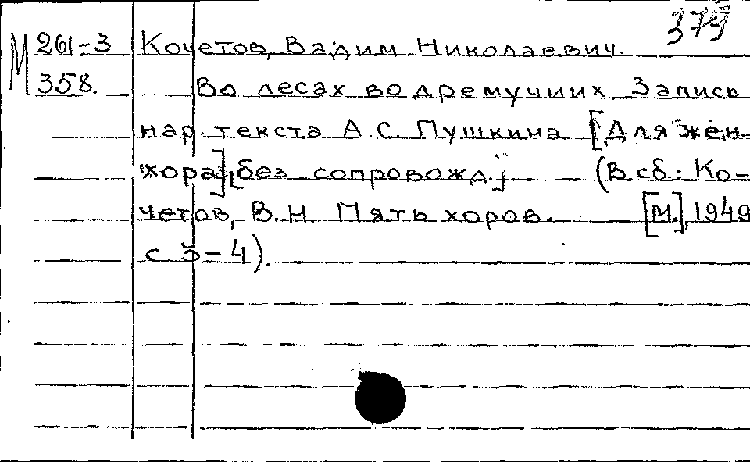 379
М 261-3 Кочетов, Вадим Николаевич.
358. Во лесах во дремучиих. Запись
нар. текста А.С. Пушкина [Для жен.
хора], [без сопровожд.] (В сб: Ко-
четов, В.Н. Пять хоров. [М.], 1949
с 3-4).